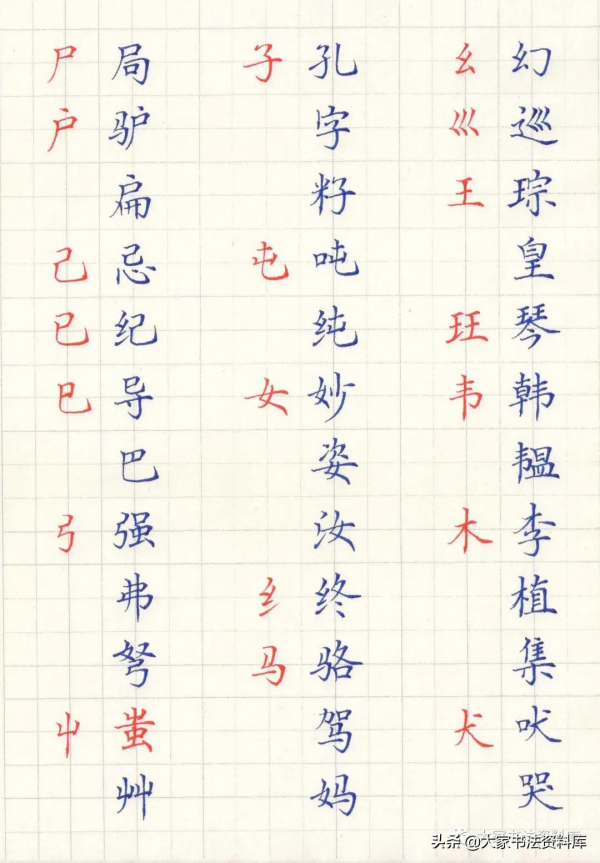 尸 局
户 驴
扁
己 忌
已 纪
巳 导
巴
弓 强
弗
弩
屮 蚩
艸
子 孔
字
籽
屯 吨
纯
女 妙
姿
汝
纟 终
马 骆
驾
妈
幺 幻
巛 巡
王 琮
皇
玨 琴
韦 韩
韫
木 李
植
集
犬 吠
哭
大家书法资料库
头条 @大家书法资料库